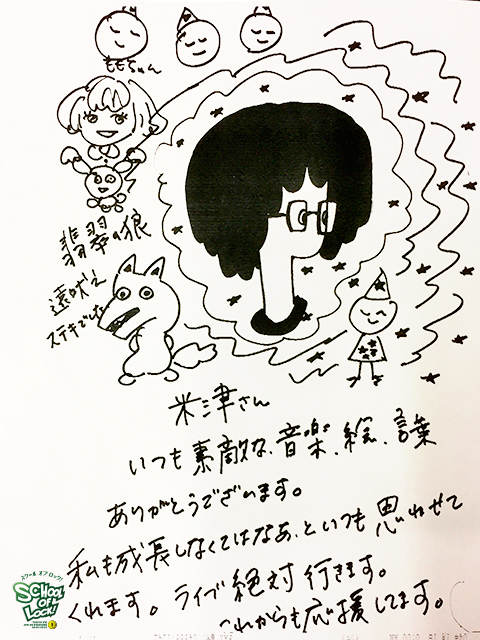 ももちゃん
翡翠の狼
遠吠え
ステキでした
米津さん
いつも素敵な、音楽、絵、言葉
ありがとうございます。
私も成長しなくてはなあ、といつも思わせて
くれます。ライブ絶対行きます。
これからも応援してます。
スクール オブ ロック!
SCHOOL OF LOCK!